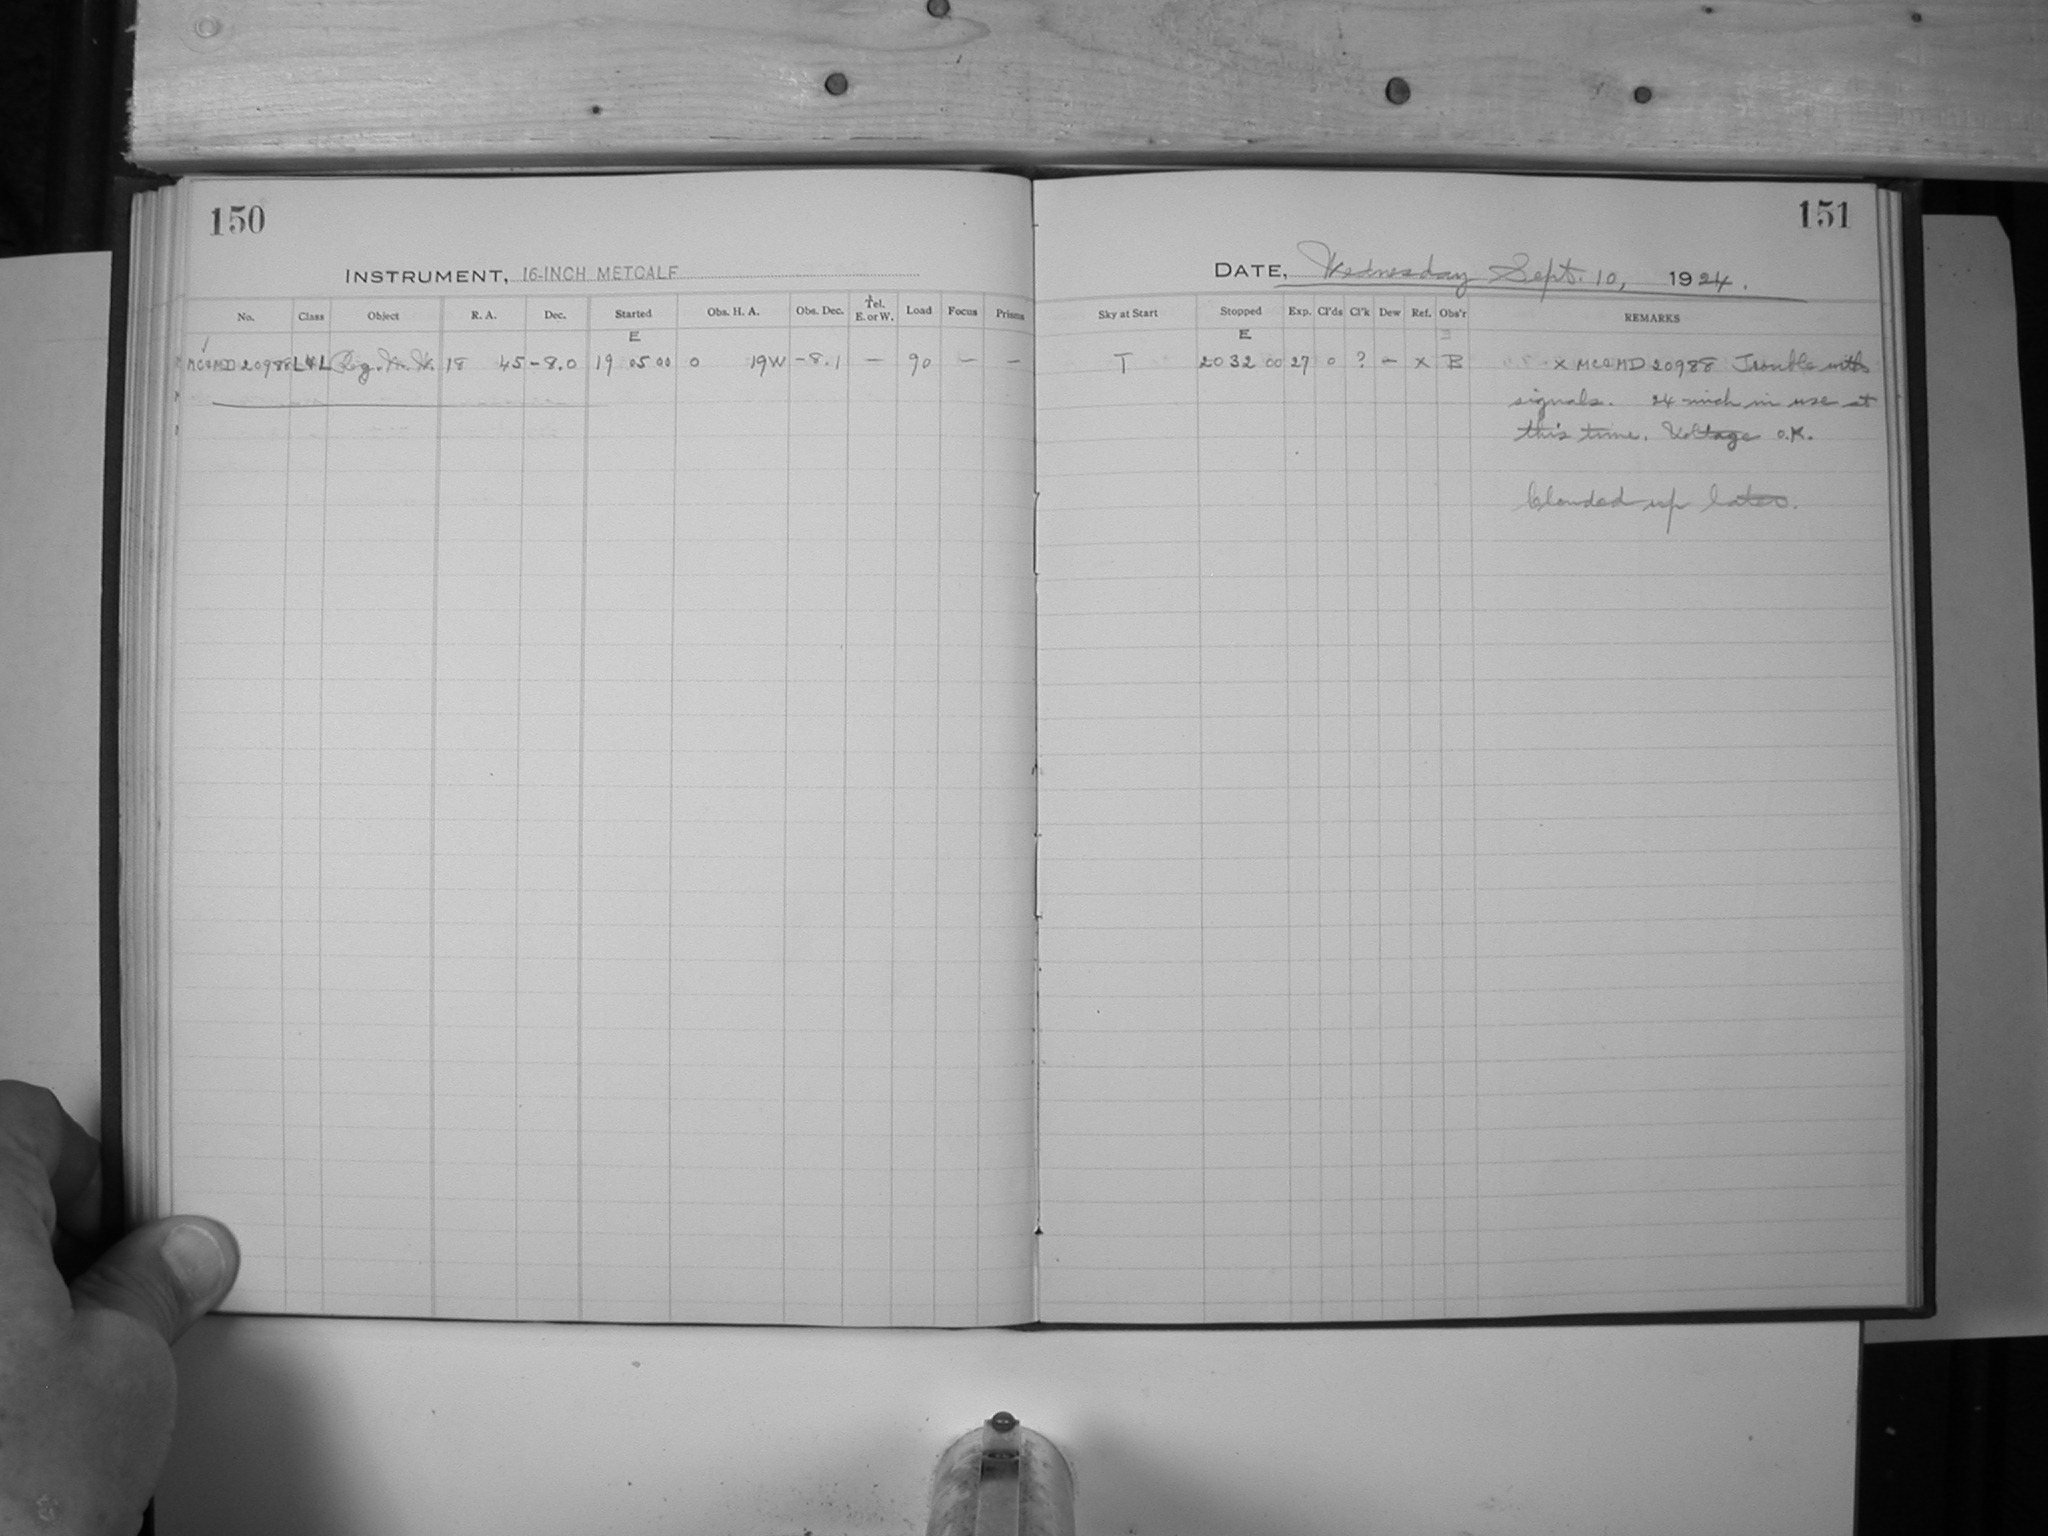 150
INSTRUMENT, 16-INCH METCALF
No. Class Object R. A. Dec. Started Obs. H. A. Obs. Dec. Tel. E. or W. Load Focus Prisms
E
MC&MD 20988 L&L Reg. 18 45 -8.0 19 05 00 0 19W -8.1 — 90 — —
151
DATE, Wednesday Sept. 10, 1924.
Sky at Start Stopped Exp. Cl'ds Cl'k Dew Ref. Obs'r REMARKS
E
T 20 32 00 27 0 ? — X B X MC&MD 20988 Trouble with
signals. 24 inch in use at
this time. Voltage O.K.
Clouded up later.